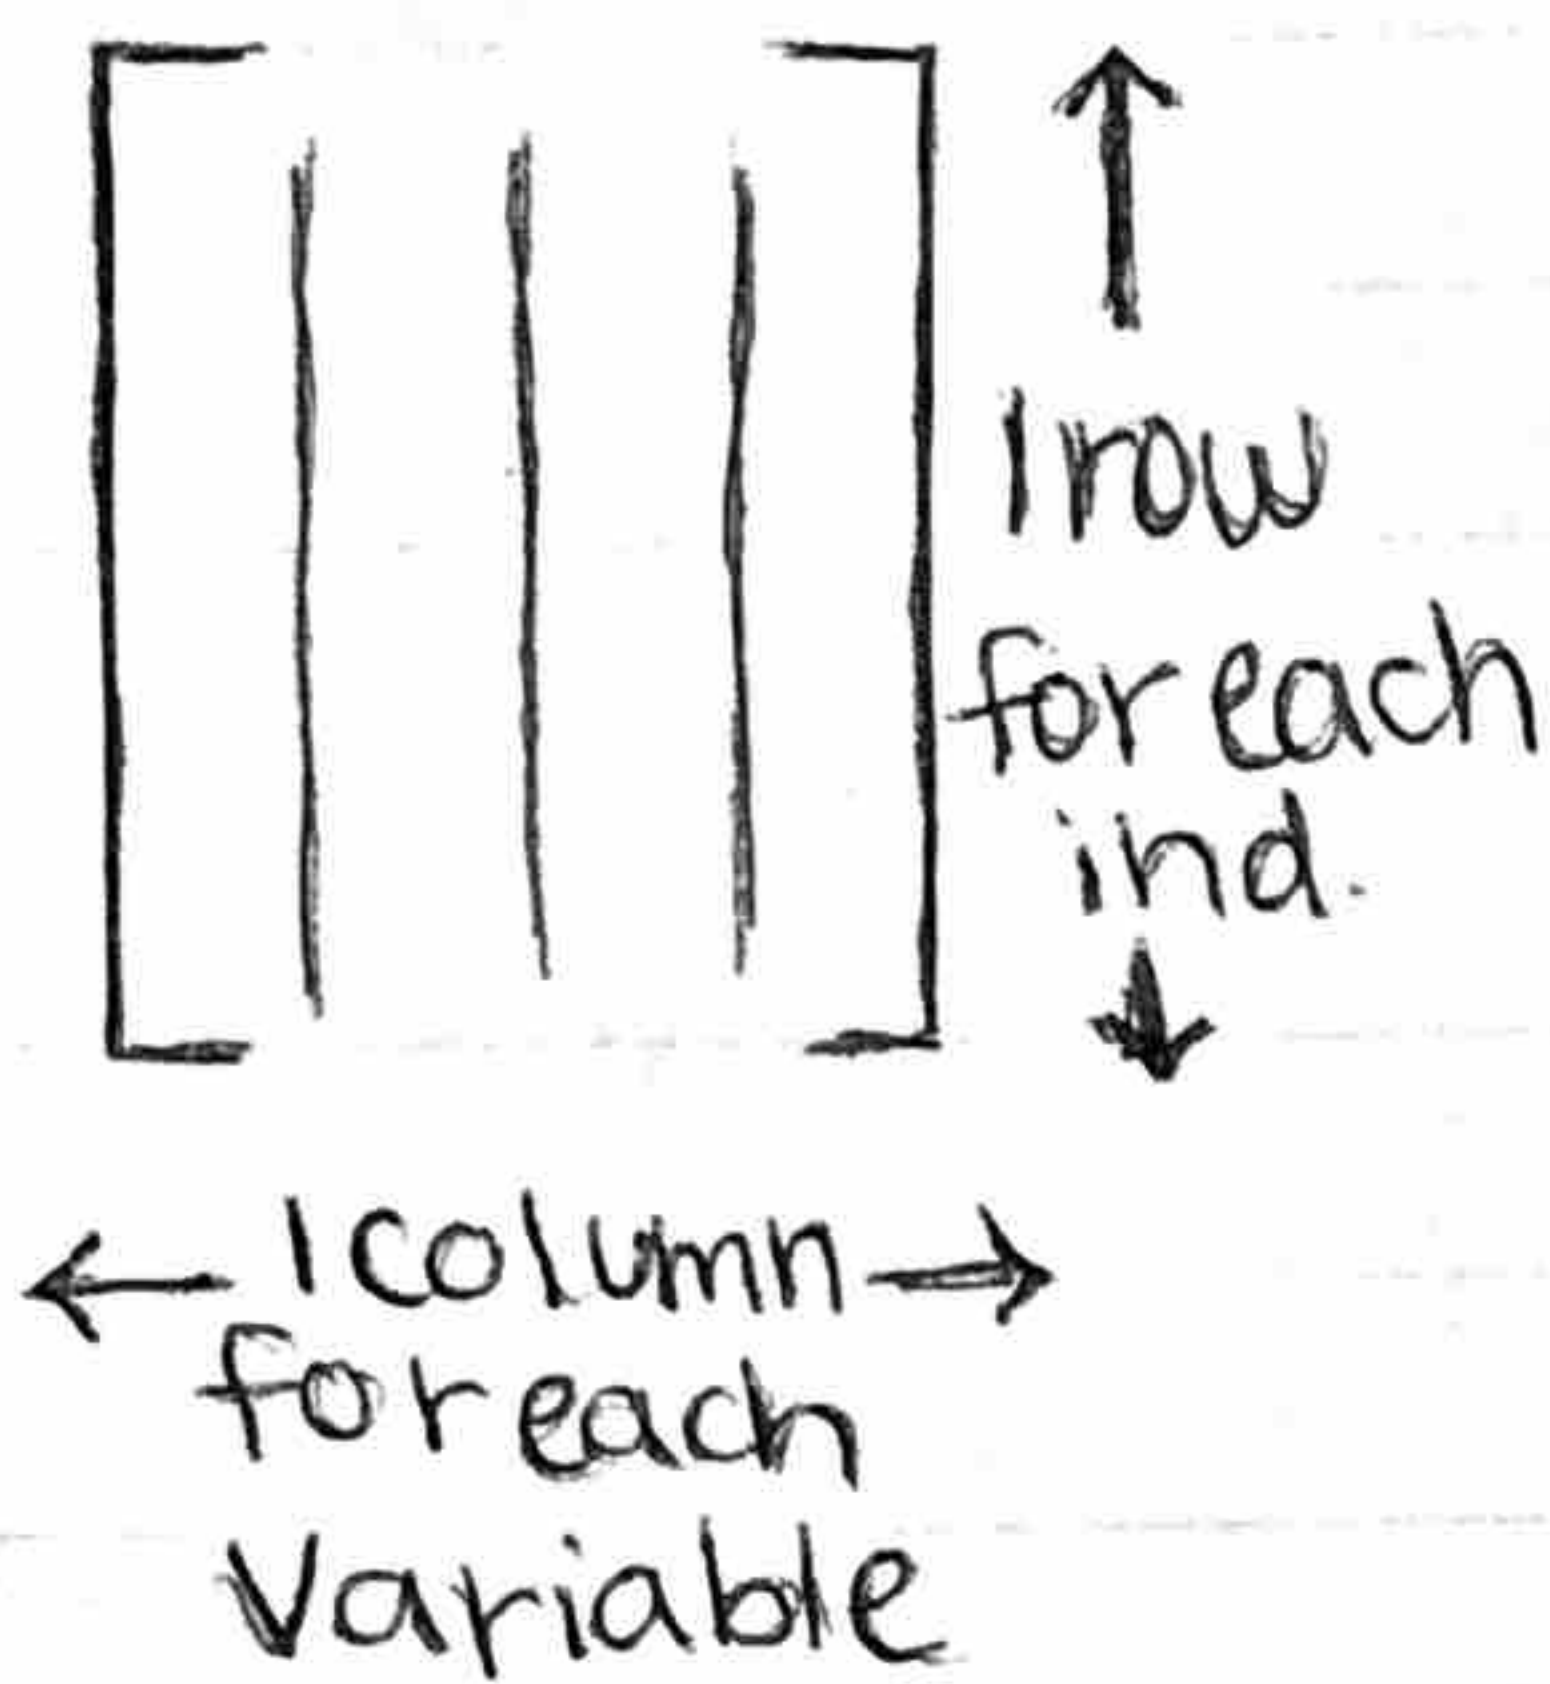 1 row
for each
ind.
1 column
for each
variable